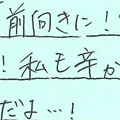 「前向きに!
!私も辛か
だよ…!